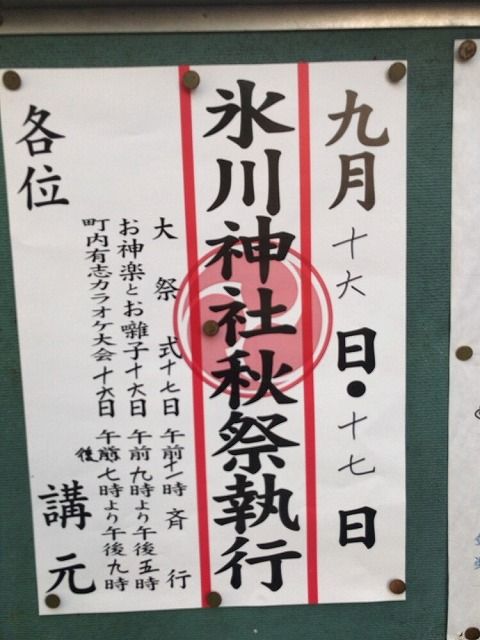 九月十六日・十七日
氷川神社秋祭執行
大祭式十七日 午前十一時斉行
お神楽とお囃子十六日 午前九時より午後五時
町内有志カラオケ大会十六日 午後七時より午後九時
各位 講元